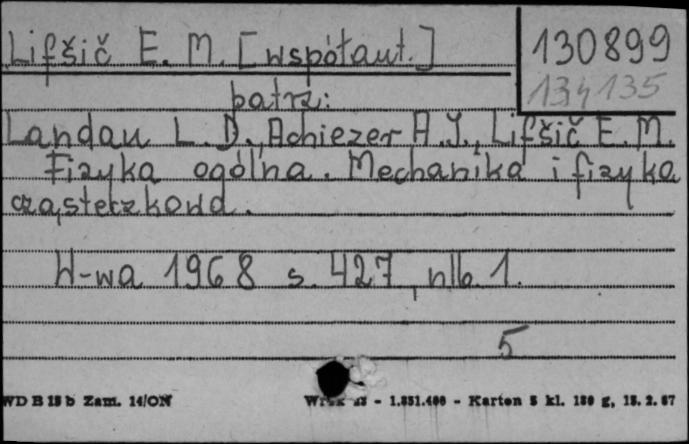 Lifšič E. M. [współaut.]
130899
134135
patrz:
Landau L. D., Achiezer A. I., Lifšič E. M.
Fizyka ogólna. Mechanika i fizyka
cząsteczkowa.
W-wa 1968 s. 427, nlb. 1.
5
WD B 15 b Zam. 14/ON
- Karten 5 kl. 180 g, 15. 2. 67